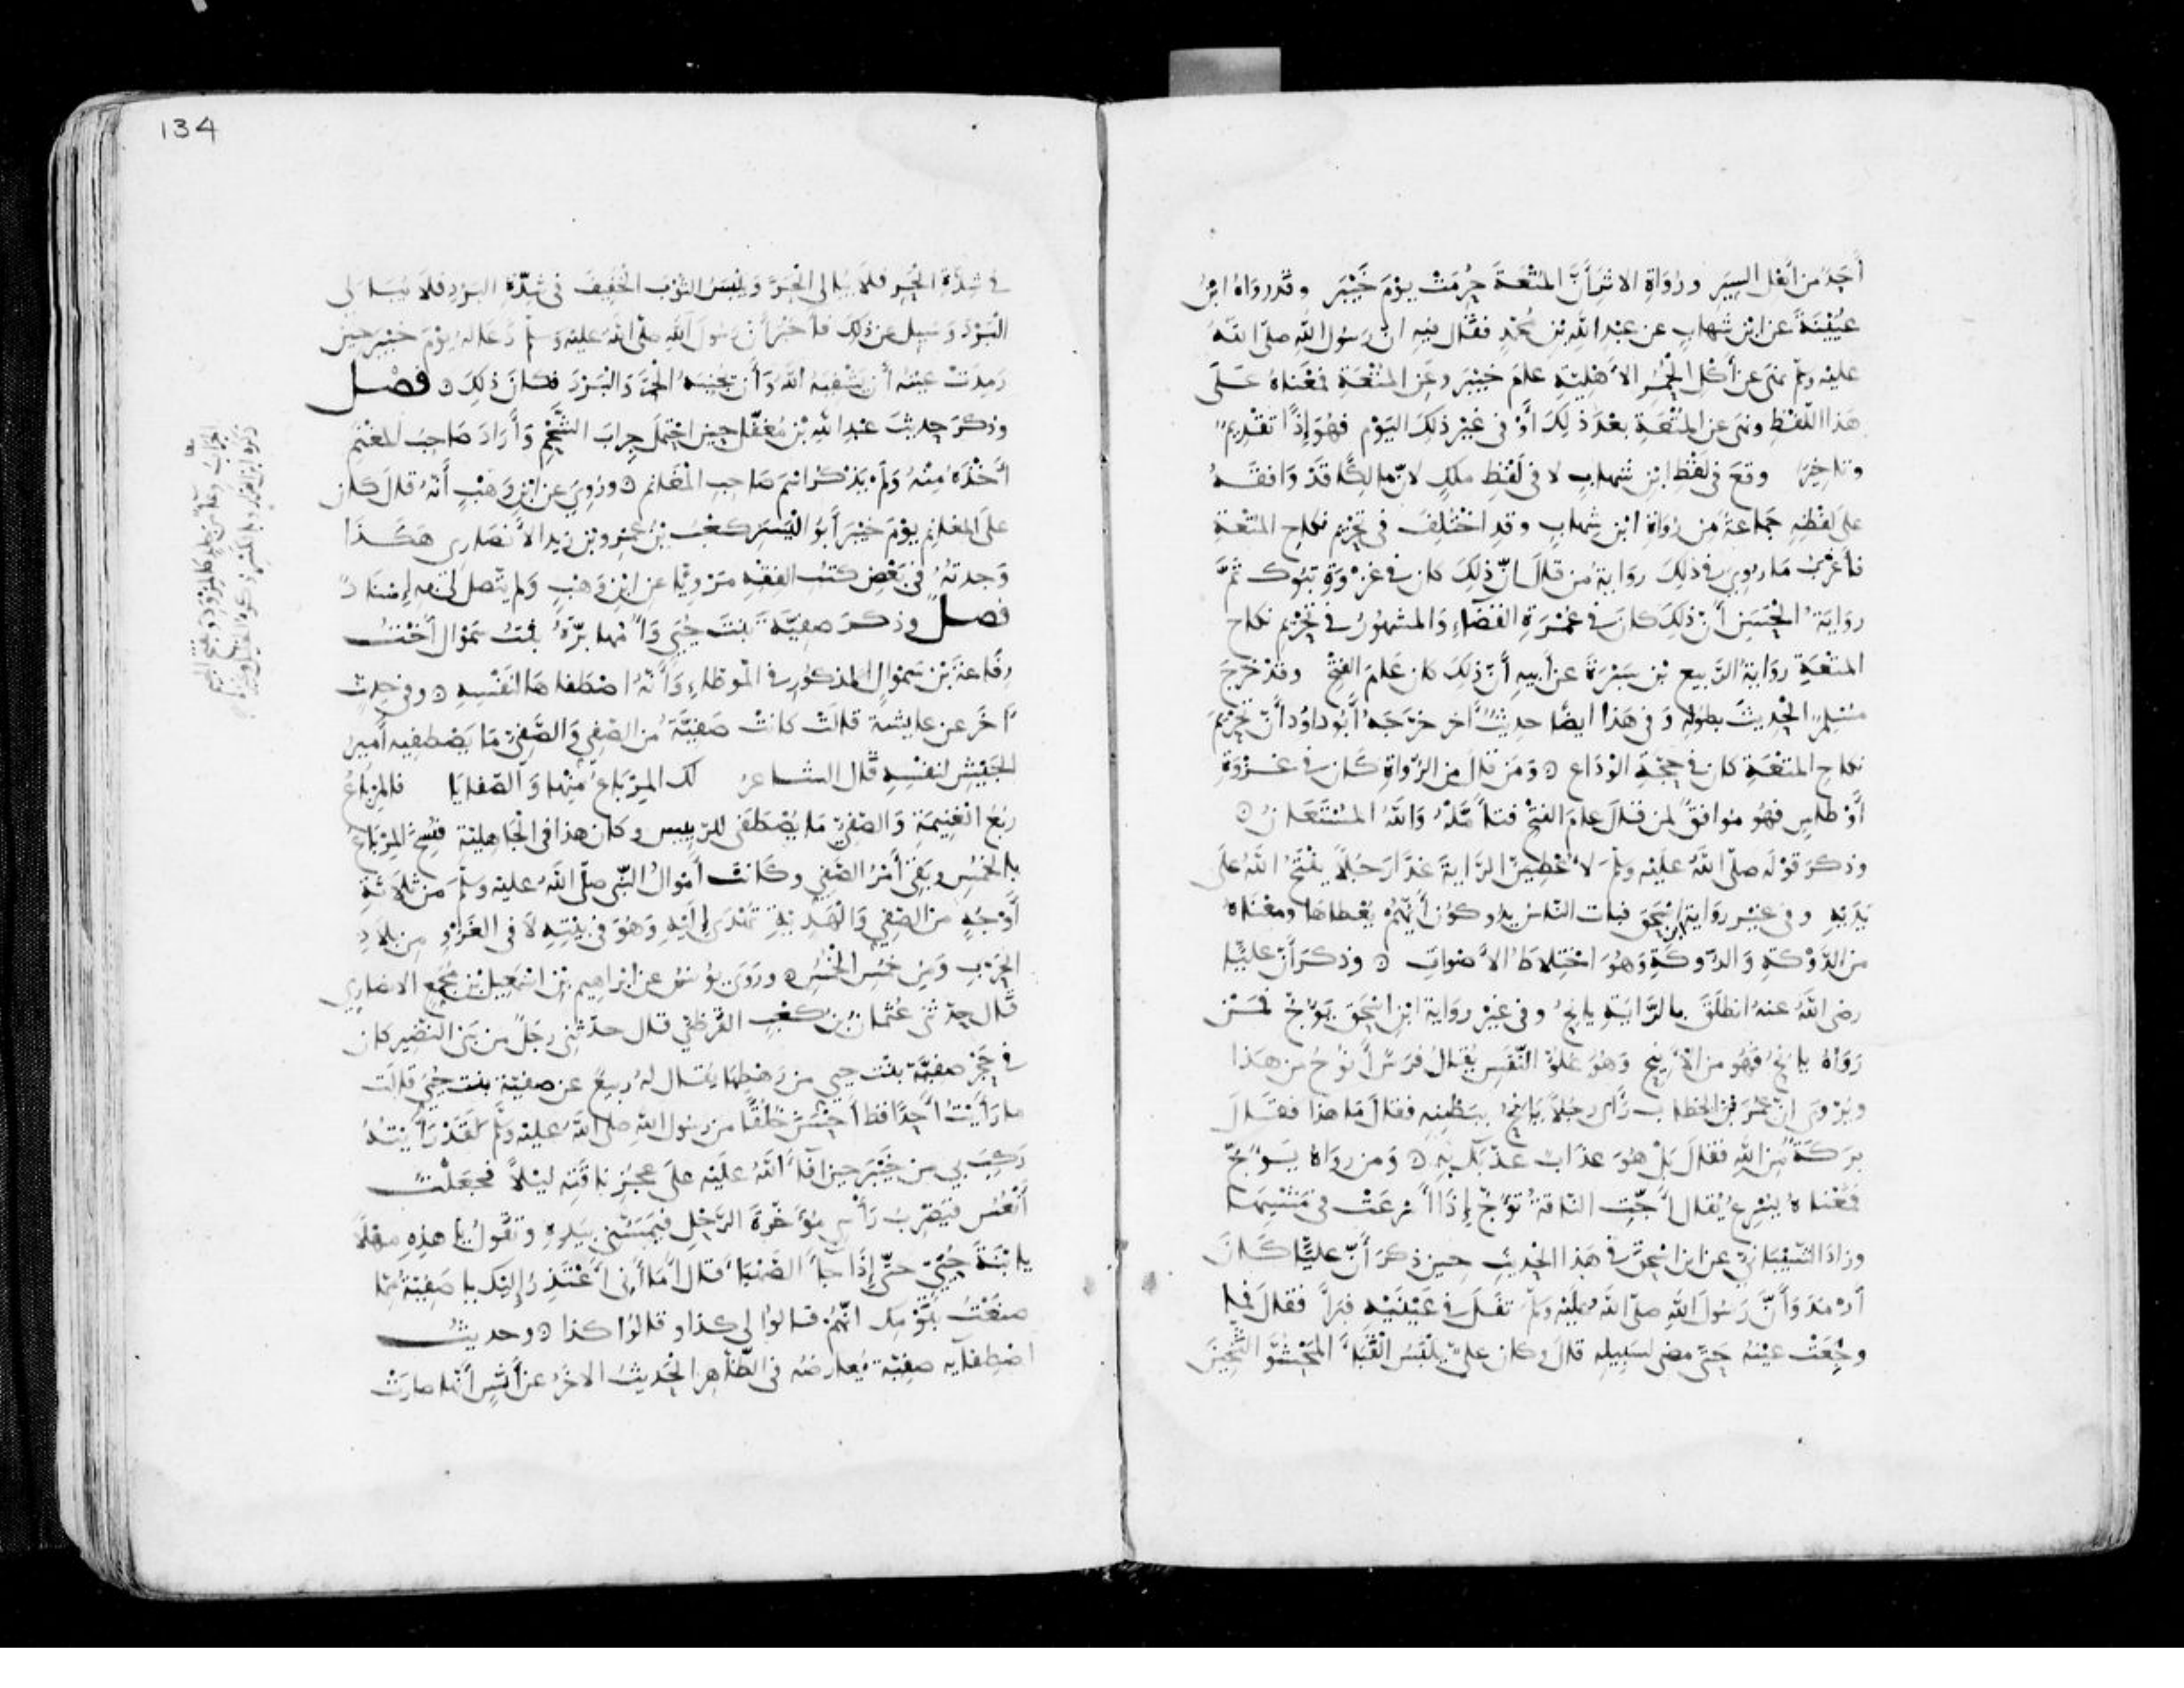 أحد من أهل السير ورواة الاثر أن المتعة حرمت يوم خيبر وقد رواه ابن
عيينة عن ابن شهاب عن عبد الله بن محمد فقال فيه ان رسول الله صلى الله
عليه وسلم نهى عن أكل الحمر الأهلية عام خيبر وعن المتعة فمعناه على
هذا اللفظ ونهى عن المتعة بعد ذلك أو في غير ذلك اليوم فهو إذا تقديم
وتاخير وقع في لفظ ابن شهاب لا في لفظ ملك لان مالكا قد وافقه
على لفظه جماعة من رواة ابن شهاب وقد اختلف في تحريم نكاح المتعة
فأغرب ما روي في ذلك رواية من قال ان ذلك كان في غزوة تبوك ثم
رواية الحسن أن ذلك كان في عمرة القضاء والمشهور في تحريم نكاح
المتعة رواية الربيع بن سبرة عن أبيه أن ذلك كان عام الفتح وقد خرج
مسلم الحديث بطوله وفي هذا ايضا حديث آخر خرجه أبو داود أن تحريم
نكاح المتعة كان في حجة الوداع ومن قال من الرواة كان في غزوة
أوطاس فهو موافق لمن قال عام الفتح فتأمله والله المستعان
وذكر قوله صلى الله عليه وسلم لأعطين الراية غدا رجلا يفتح الله على
يديه وفي غير رواية ابن اسحق فبات الناس يدوكون أيهم يعطاها ومعناه
من الدوكة والدوكة وهو اختلاط الأصوات وذكر أن عليا
رضى الله عنه انطلق بالراية يانح وفي غير رواية ابن اسحق يؤج فمن
رواه يانح فهو من الأنيح وهو علو النفس يقال فرس أنوح من هذا
ويروى ان عمر بن الخطاب رأى رجلا يانح ببطنه فقال ما هذا فقال
بركة من الله فقال بل هو عذاب عذبك به ومن رواه يؤج
فمعناه يسرع يقال أجت الناقة تؤج إذا أسرعت في مشيها
وزاد الشيباني عن ابن اسحق في هذا الحديث حين ذكر أن عليا كان
أرمد وأن رسول الله صلى الله عليه وسلم تفل في عينيه فبرأ فقال فما
وجعت عينه حتى مضى لسبيله قال وكان علي يلبس القباء المحشو الثخين
134
في شدة الحر فلا يبالى الحر ويلبس الثوب الخفيف في شدة البرد فلا يبالى
البرد وسيل عن ذلك فأخبر أن رسول الله صلى الله عليه وسلم دعا له يوم خيبر حين
رمدت عينه أن يشفيه الله وأن يجنبه الحر والبرد فكان ذلك فصل
وذكر حديث عبد الله بن مغفل حين احتمل جراب الشحم وأراد صاحب المغنم
أخذه منه ولم يذكر اسم صاحب المغانم وروي عن ابن وهب أنه قال كان
على المغانم يوم خيبر أبو اليسر كعب بن عمرو بن زيد الأنصاري هكذا
وجدته في بعض كتب الفقه مرويا عن ابن وهب ولم يتصل لي به إسناد
فصل وذكر صفية بنت حيي وأمها برة بنت سموال أخت
رفاعة بن سموال المذكور في الموطاء وأنه اصطفاها لنفسه وفي حديث
آخر عن عايشة قالت كانت صفية من الصفي والصفي ما يصطفيه أمير
الجيش لنفسه قال الشاعر لك المرباع منها والصفايا فالمرباع
ربع الغنيمة والصفي ما يصطفى للرييس وكان هذا في الجاهلية فنسخ المرباع
بالخمس وبقي أمر الصفي وكانت أموال النبي صلى الله عليه وسلم من ثلاثة
أوجه من الصفي والهدية تهدى إليه وهو في بيته لا في الغزو من بلاد
الحرب ومن خمس الخمس وروى يونس عن ابراهيم بن اسمعيل بن مجمع الانصاري
قال حدثني عثمان بن كعب القرظي قال حدثني رجل من بني النضير كان
في حجر صفية بنت حيي من رهطها يقال له ربيع عن صفية بنت حيي قالت
ما رأيت أحدا قط أحسن خلقا من رسول الله صلى الله عليه وسلم لقد رأيته
ركب بي من خيبر حين أفاء الله عليه على عجز ناقته ليلا فجعلت
أنعس فيضرب رأسي مؤخرة الرحل فيمسني بيده ويقول يا هذه مهلا
يا بنة حيي حتى إذا جاء الصهباء قال أما أني أعتذر إليك يا صفية مما
صنعت بقومك انهم قالوا لي كذا وقالوا كذا وحديث
اصطفايه صفية يعارضه في الظاهر الحديث الاخر عن أنس أنها صارت